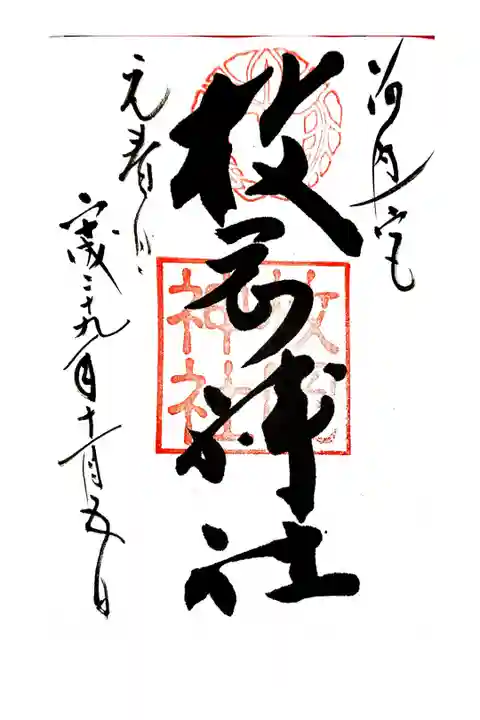 河内一宮
枚岡神社
枚岡
神社
元春日
平成二十九年十一月五日